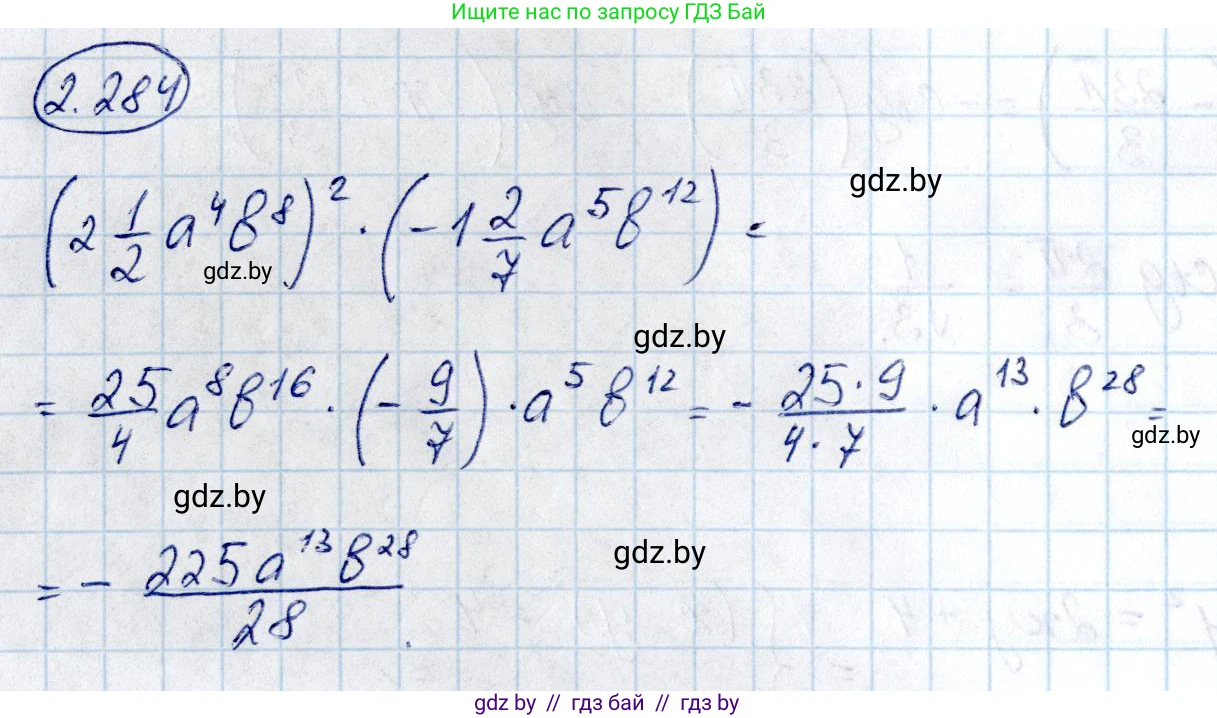 Ищите нас по запросу ГДЗ Бай
2.284
(2 1/2 a⁴b⁸)² · (-1 2/7 a⁵b¹²) =
gdz.by
gdz.by
gdz.by
= 25/4 a⁸b¹⁶ · (-9/7) · a⁵ b¹² = - 25·9/4·7 · a¹³ · b²⁸ =
gdz.by
gdz.by
gdz.by
= - 225a¹³b²⁸/28.
gdz.by // гдз бай // гдз by